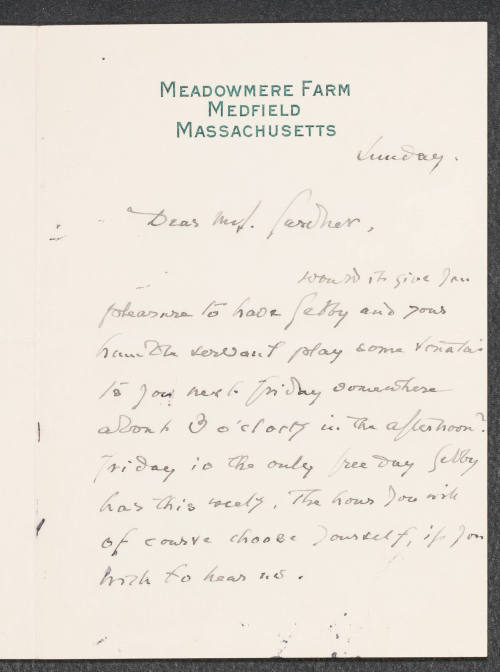 MEADOWMERE FARM
MEDFIELD
MASSACHUSETTS
Sunday.
Dear Mrs. Gardner,
would it give you
pleasure to have Gebby and your
humble servant play some sonatas
to you next Friday somewhere
about 3 o'clock in the afternoon?
Friday is the only free day Gebby
has this week. The hour you will
of course choose yourself, if you
wish to hear us.